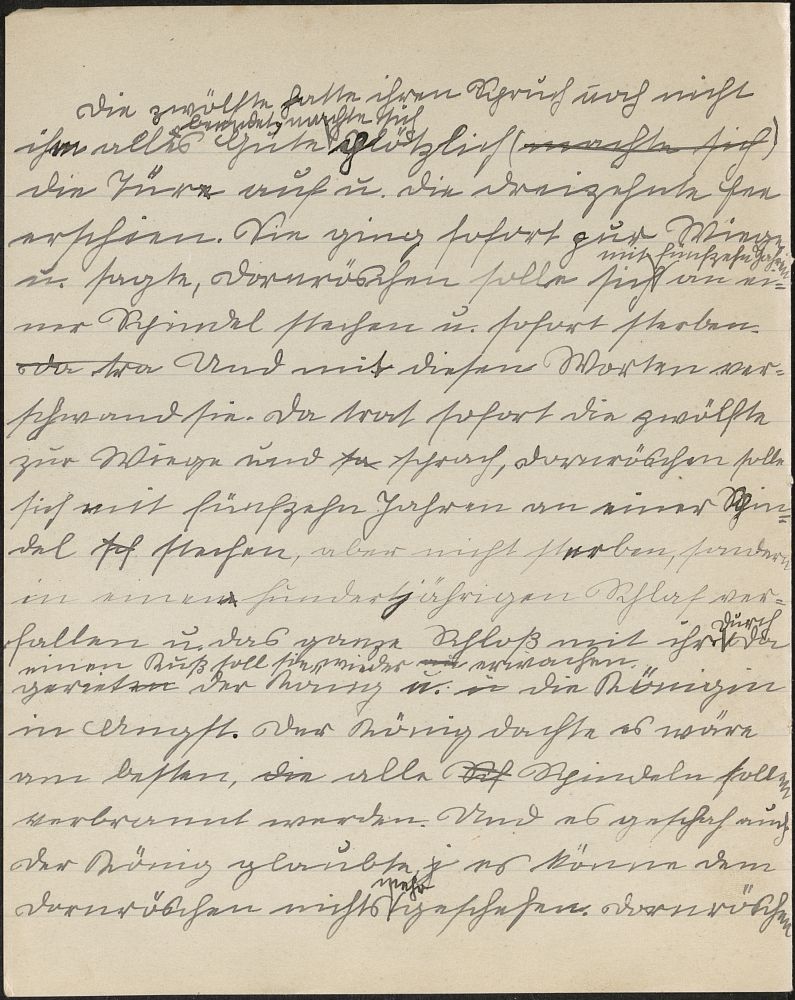 Die zwölfte hatte ihren Spruch noch nicht
beendet, machte sich
ihm alles Gute plötzlich (machte sich)
die Türe auf u. die dreizehnte Fee
erschien. Sie ging sofort zur Wiege
mit fünfzehn Jahren
u. sagte, Dornröschen solle sich an ei=
ner Spindel stechen u. sofort sterben.
da tra Und mit diesen Worten ver=
schwand sie. Da trat sofort die zwölfte
zur Wiege und sa sprach, Dornröschen solle
sich mit fünfzehn Jahren an einer Spin=
del sch stechen, aber nicht sterben, sondern
in einen hundertjährigen Schlaf ver=
durch
fallen u. das ganze Schloß mit ihr. Da
einen Kuß soll sie wieder erwachen.
gerieten der König u. die Königin
in Angst. Der König dachte es wäre
am besten, die alle Sch Spindeln sollen
verbrannt werden. Und es geschah auch
der König glaubte, es könne dem
mehr
Dornröschen nichts geschehen. Dornröschen